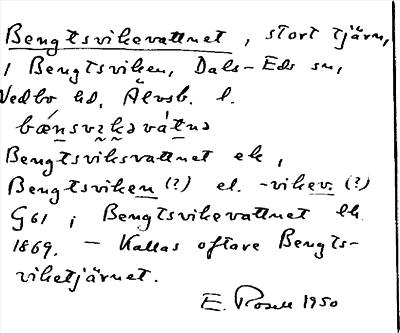 Bengtsvikevattnet, stort tjärn,
i Bengtsviken, Dals-Eds sn,
Vedbo hd, Älvsb. l.
bǽnsvɪkəvátnə
Bengtsviksvattnet ek,
Bengtsviken (?) el. -vikev. (?)
G61; Bengtsvikevattnet
1869. – Kallas oftare Bengts-
viketjärnet.
E. Rosell 1950